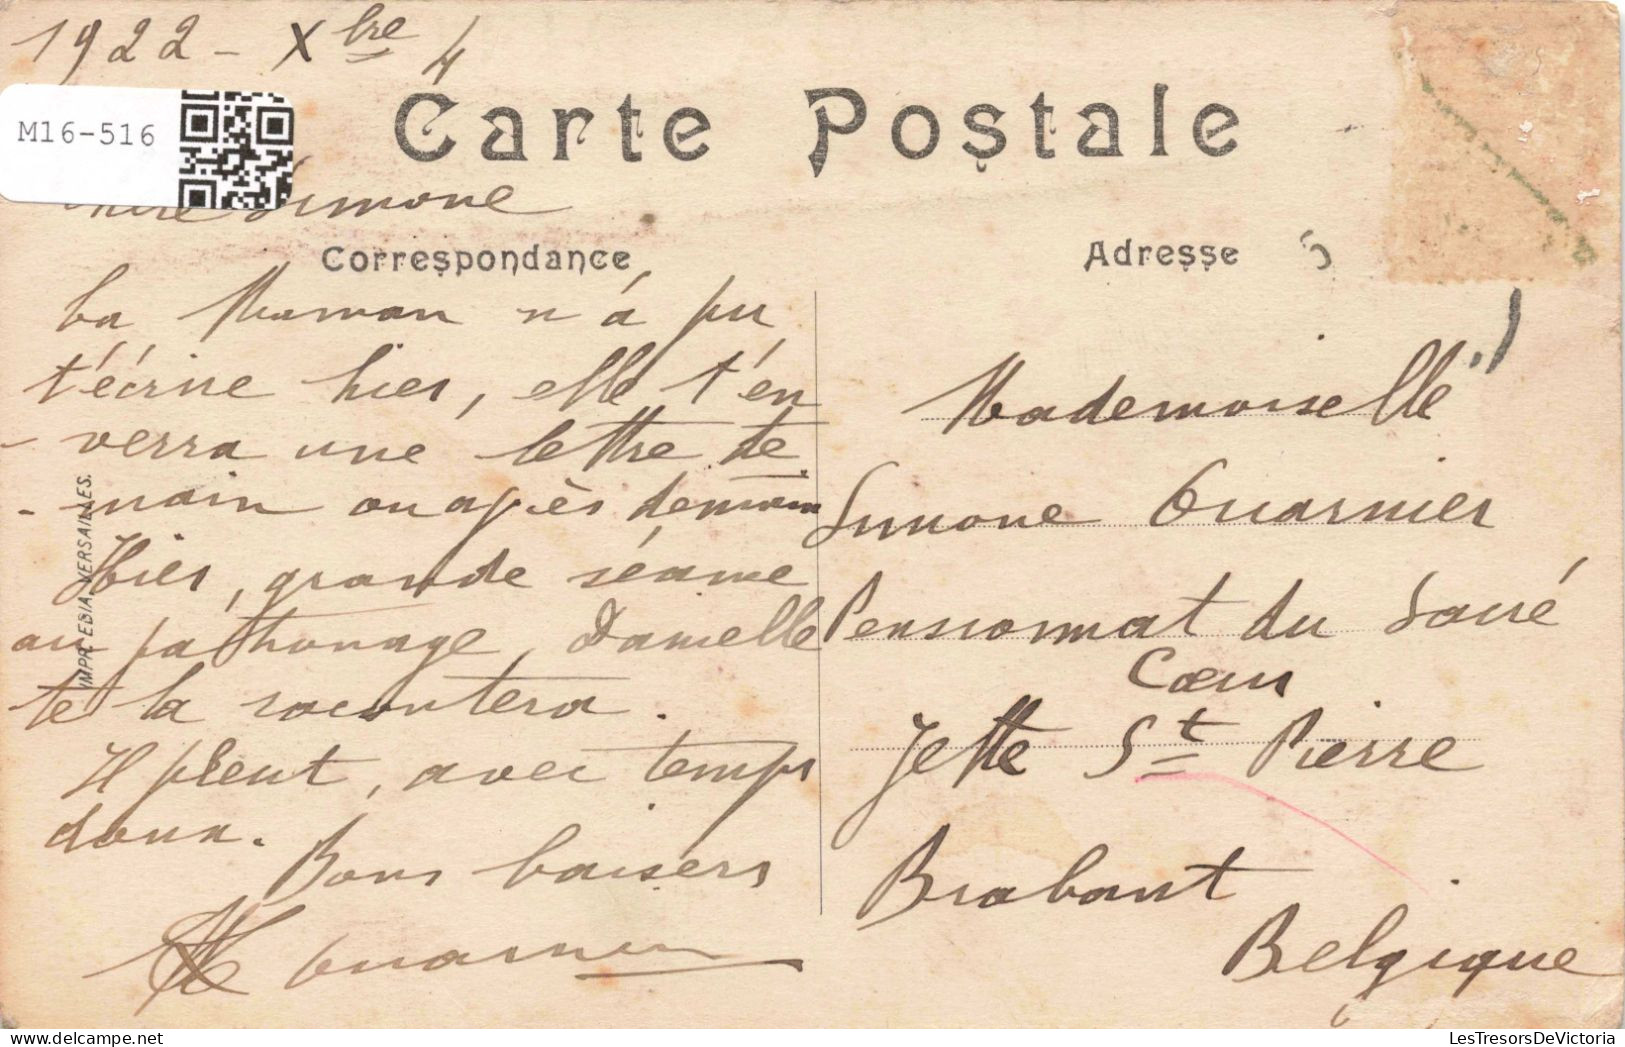 1922 - Xbre 4
M16-516
Carte Postale
Simone
Correspondance
Adresse
ta Maman n'a pu
t'écrire hier, elle t'en
- verra une lettre de
- main ou après demain
Hier, grande séance
au patronage, Danielle
te la racontera.
Il pleut, avec temps
doux.
Bons baisers
IMPR. EDIA, VERSAILLES.
Mademoiselle
Simone
Pensionnat du Sacré
Cœur
Jette St Pierre
Brabant
Belgique
LesTresorsDeVictoria.com